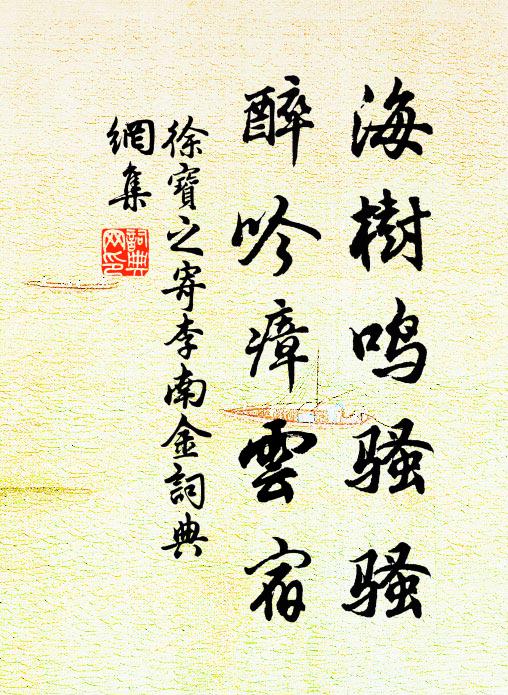 海樹鸣骚骚
醉吟瘴雲宿
徐寶之寄李南金詞典
網集
詞典
网印